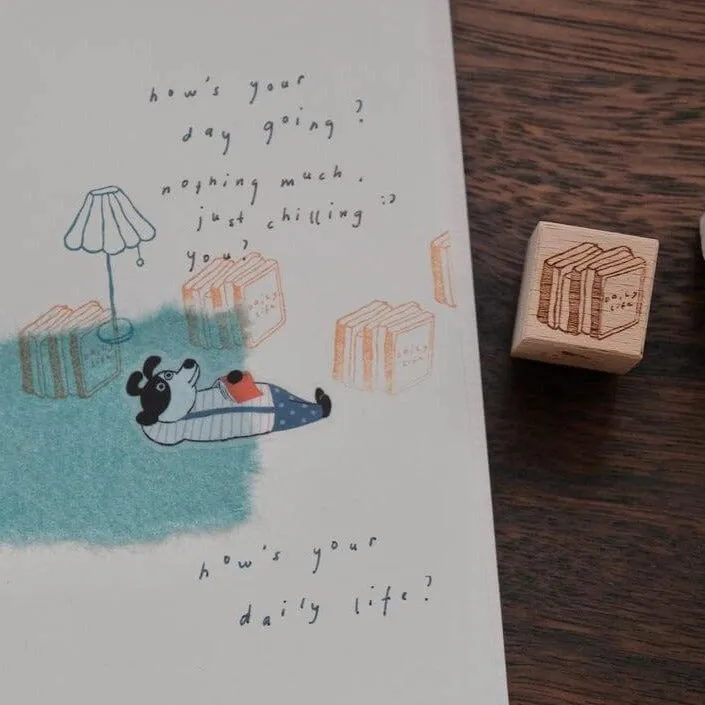 how's your
day going?
nothing much,
just chilling :)
you?
daily
life
daily
life
daily
life
daily
life
how's your
daily life?